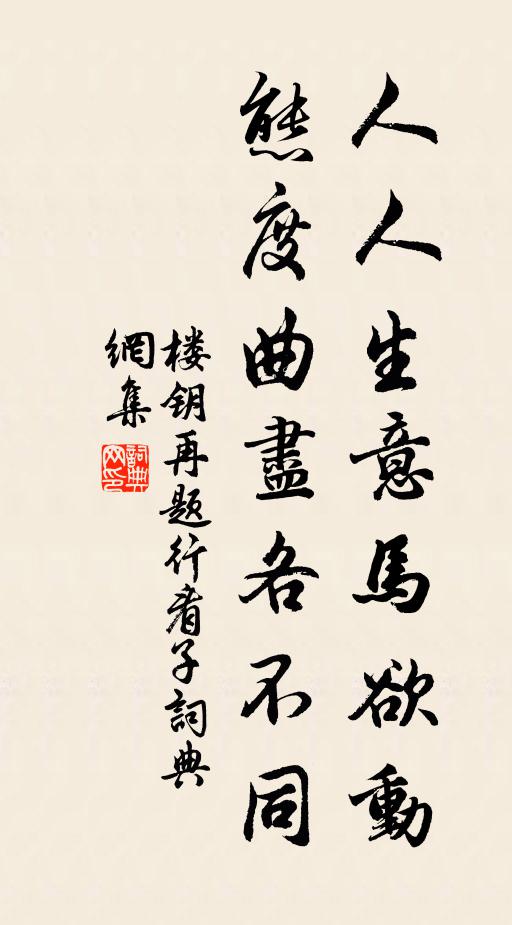 人人生意馬欲動
態度曲盡各不同
楼钥再题行看子詞典
網集
詞典
网印